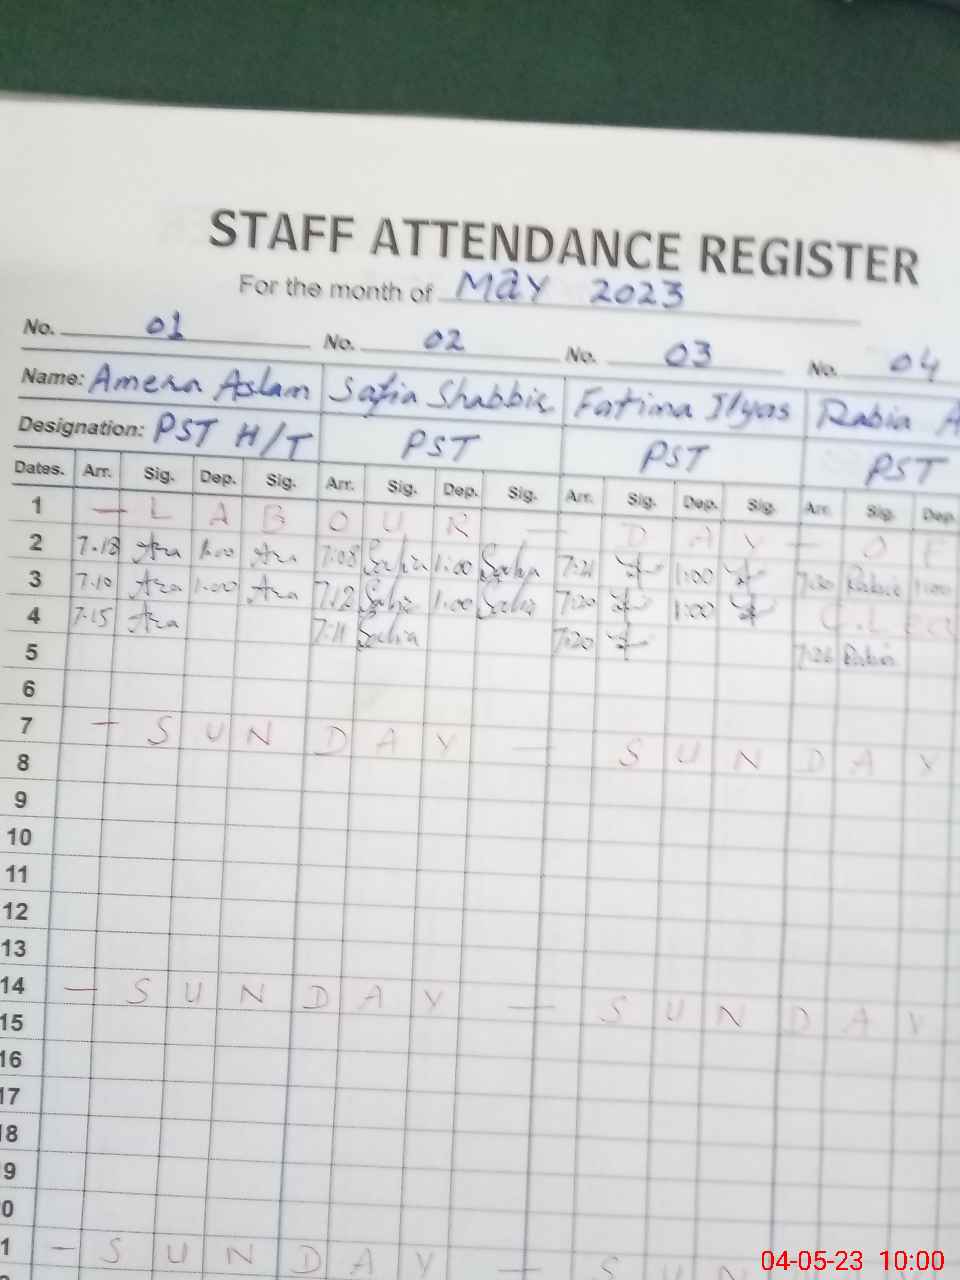 STAFF ATTENDANCE REGISTER
For the month of May 2023
No. 01 No. 02 No. 03 No. 04
Name: Amena Aslam Safia Shabbir Fatima Ilyas Rabia A
Designation: PST H/T PST PST PST
Dates. Arr. Sig. Dep. Sig. Arr. Sig. Dep. Sig. Arr. Sig. Dep. Sig. Arr. Sig. Dep.
1 — L A B O U R — D A Y — O F
2 7.18 1:00 7:08 Safia 1:00 Safia 7:21 1:00 7:30 Rabia 1:00
3 7.10 1:00 7:12 Safia 1:00 Safia 7:20 1:00 C.L
4 7.15 7:11 Safia 7:20 Rabia
5
6
7 — S U N D A Y — S U N D A Y
8
9
10
11
12
13
14 — S U N D A Y — S U N D A Y
15
16
17
18
9
0
1 — S U N D A Y — S U N
04-05-23 10:00